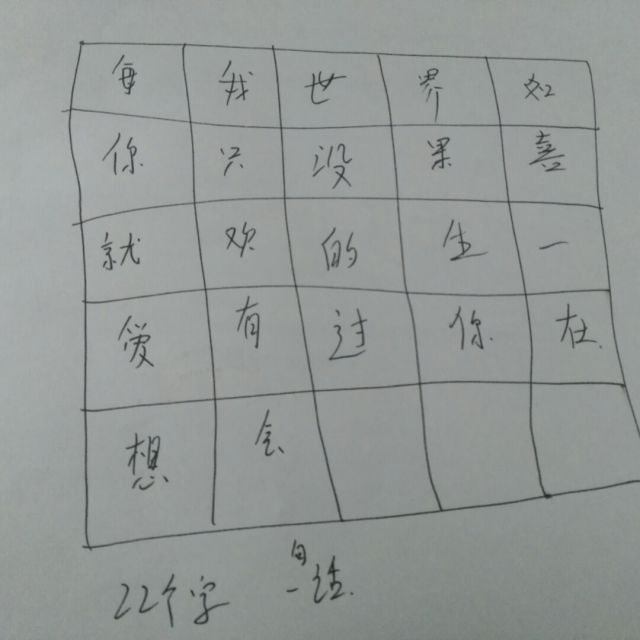 每 我 世 界 如
你 只 没 果 喜
就 欢 的 生 一
爱 有 过 你 在
想 会
22个字 一句话.